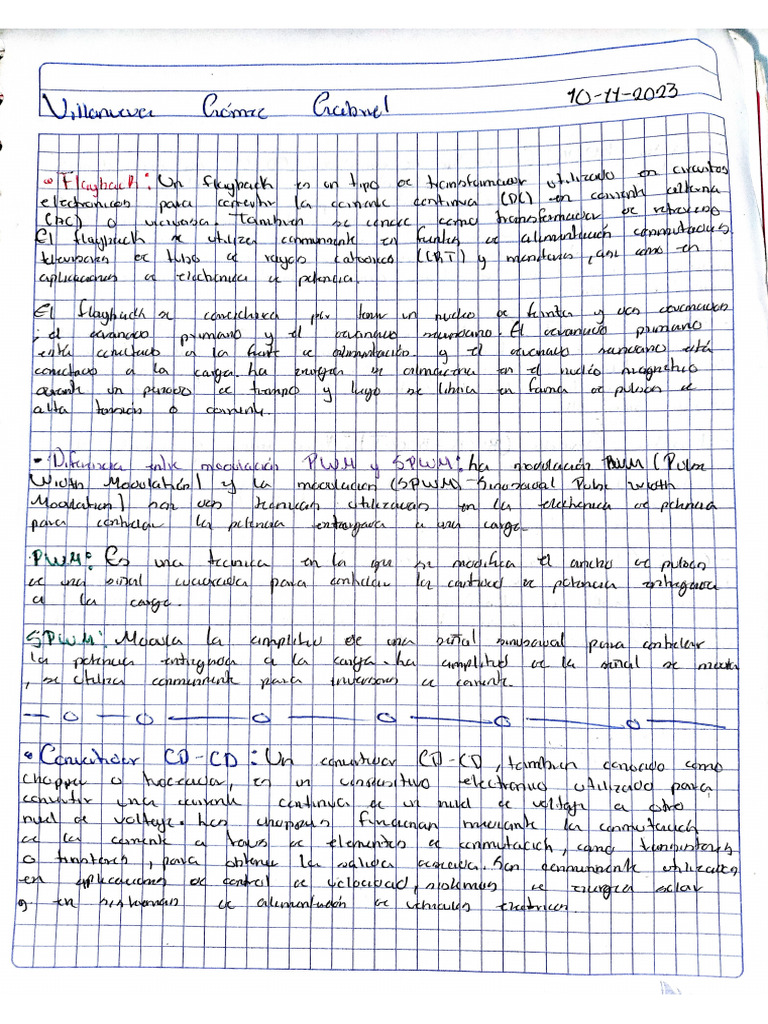 Villanueva Gómez Gabriel 10-11-2023
• Flayback: Un flayback es un tipo de transformador utilizado en circuitos
electronicos para convertir la corriente continua (DC) en corriente alterna
(AC) o viceversa. Tambien se conoce como transformador de retroceso
El flayback se utiliza comunmente en fuentes de alimentación conmutadas
televisores de tubo de rayos catodicos (CRT) y monitores, asi como en
aplicaciones de electrónica de potencia.
El flayback se caracteriza por tener un nucleo de ferrita y dos devanados
; el devanado primario y el devanado secundario. El devanado primario
esta conectado a la fuente de alimentación y el devanado secundario está
conectado a la carga. La energia se almacena en el nucleo magnetico
durante un periodo de tiempo y luego se libera en forma de pulsos de
alta tensión o corriente.
- Diferencia entre modulación PWM y SPWM: La modulación PWM (Pulse
Width Modulation) y la modulacion (SPWM - Sinusoidal Pulse Width
Modulation) son dos tecnicas utilizadas en la electronica de potencia
para controlar la potencia entregada a una carga.
PWM: Es una tecnica en la que se modifica el ancho de pulsos
de una señal cuadrada para controlar la cantidad de potencia entregada
a la carga.
SPWM: Modula la amplitud de una señal sinusoidal para controlar
la potencia entregada a la carga. La amplitud de la señal se
, se utiliza comunmente para inversores de corriente.
• Convertidor CD-CD: Un convertidor CD-CD, tambien conocido como
chopper o troceador, es un dispositivo electronico utilizado para
convertir una corriente continua de un nivel de voltaje a otro
nivel de voltaje. Los choppers funcionan mediante la conmutación
de la corriente a traves de elementos de conmutación, como transistores
o tiristores, para obtener la salida deseada. Son comunmente utilizados
en aplicaciones de control de velocidad, sistemas de energia solar
y en sistemas de alimentación de vehiculos electricos.